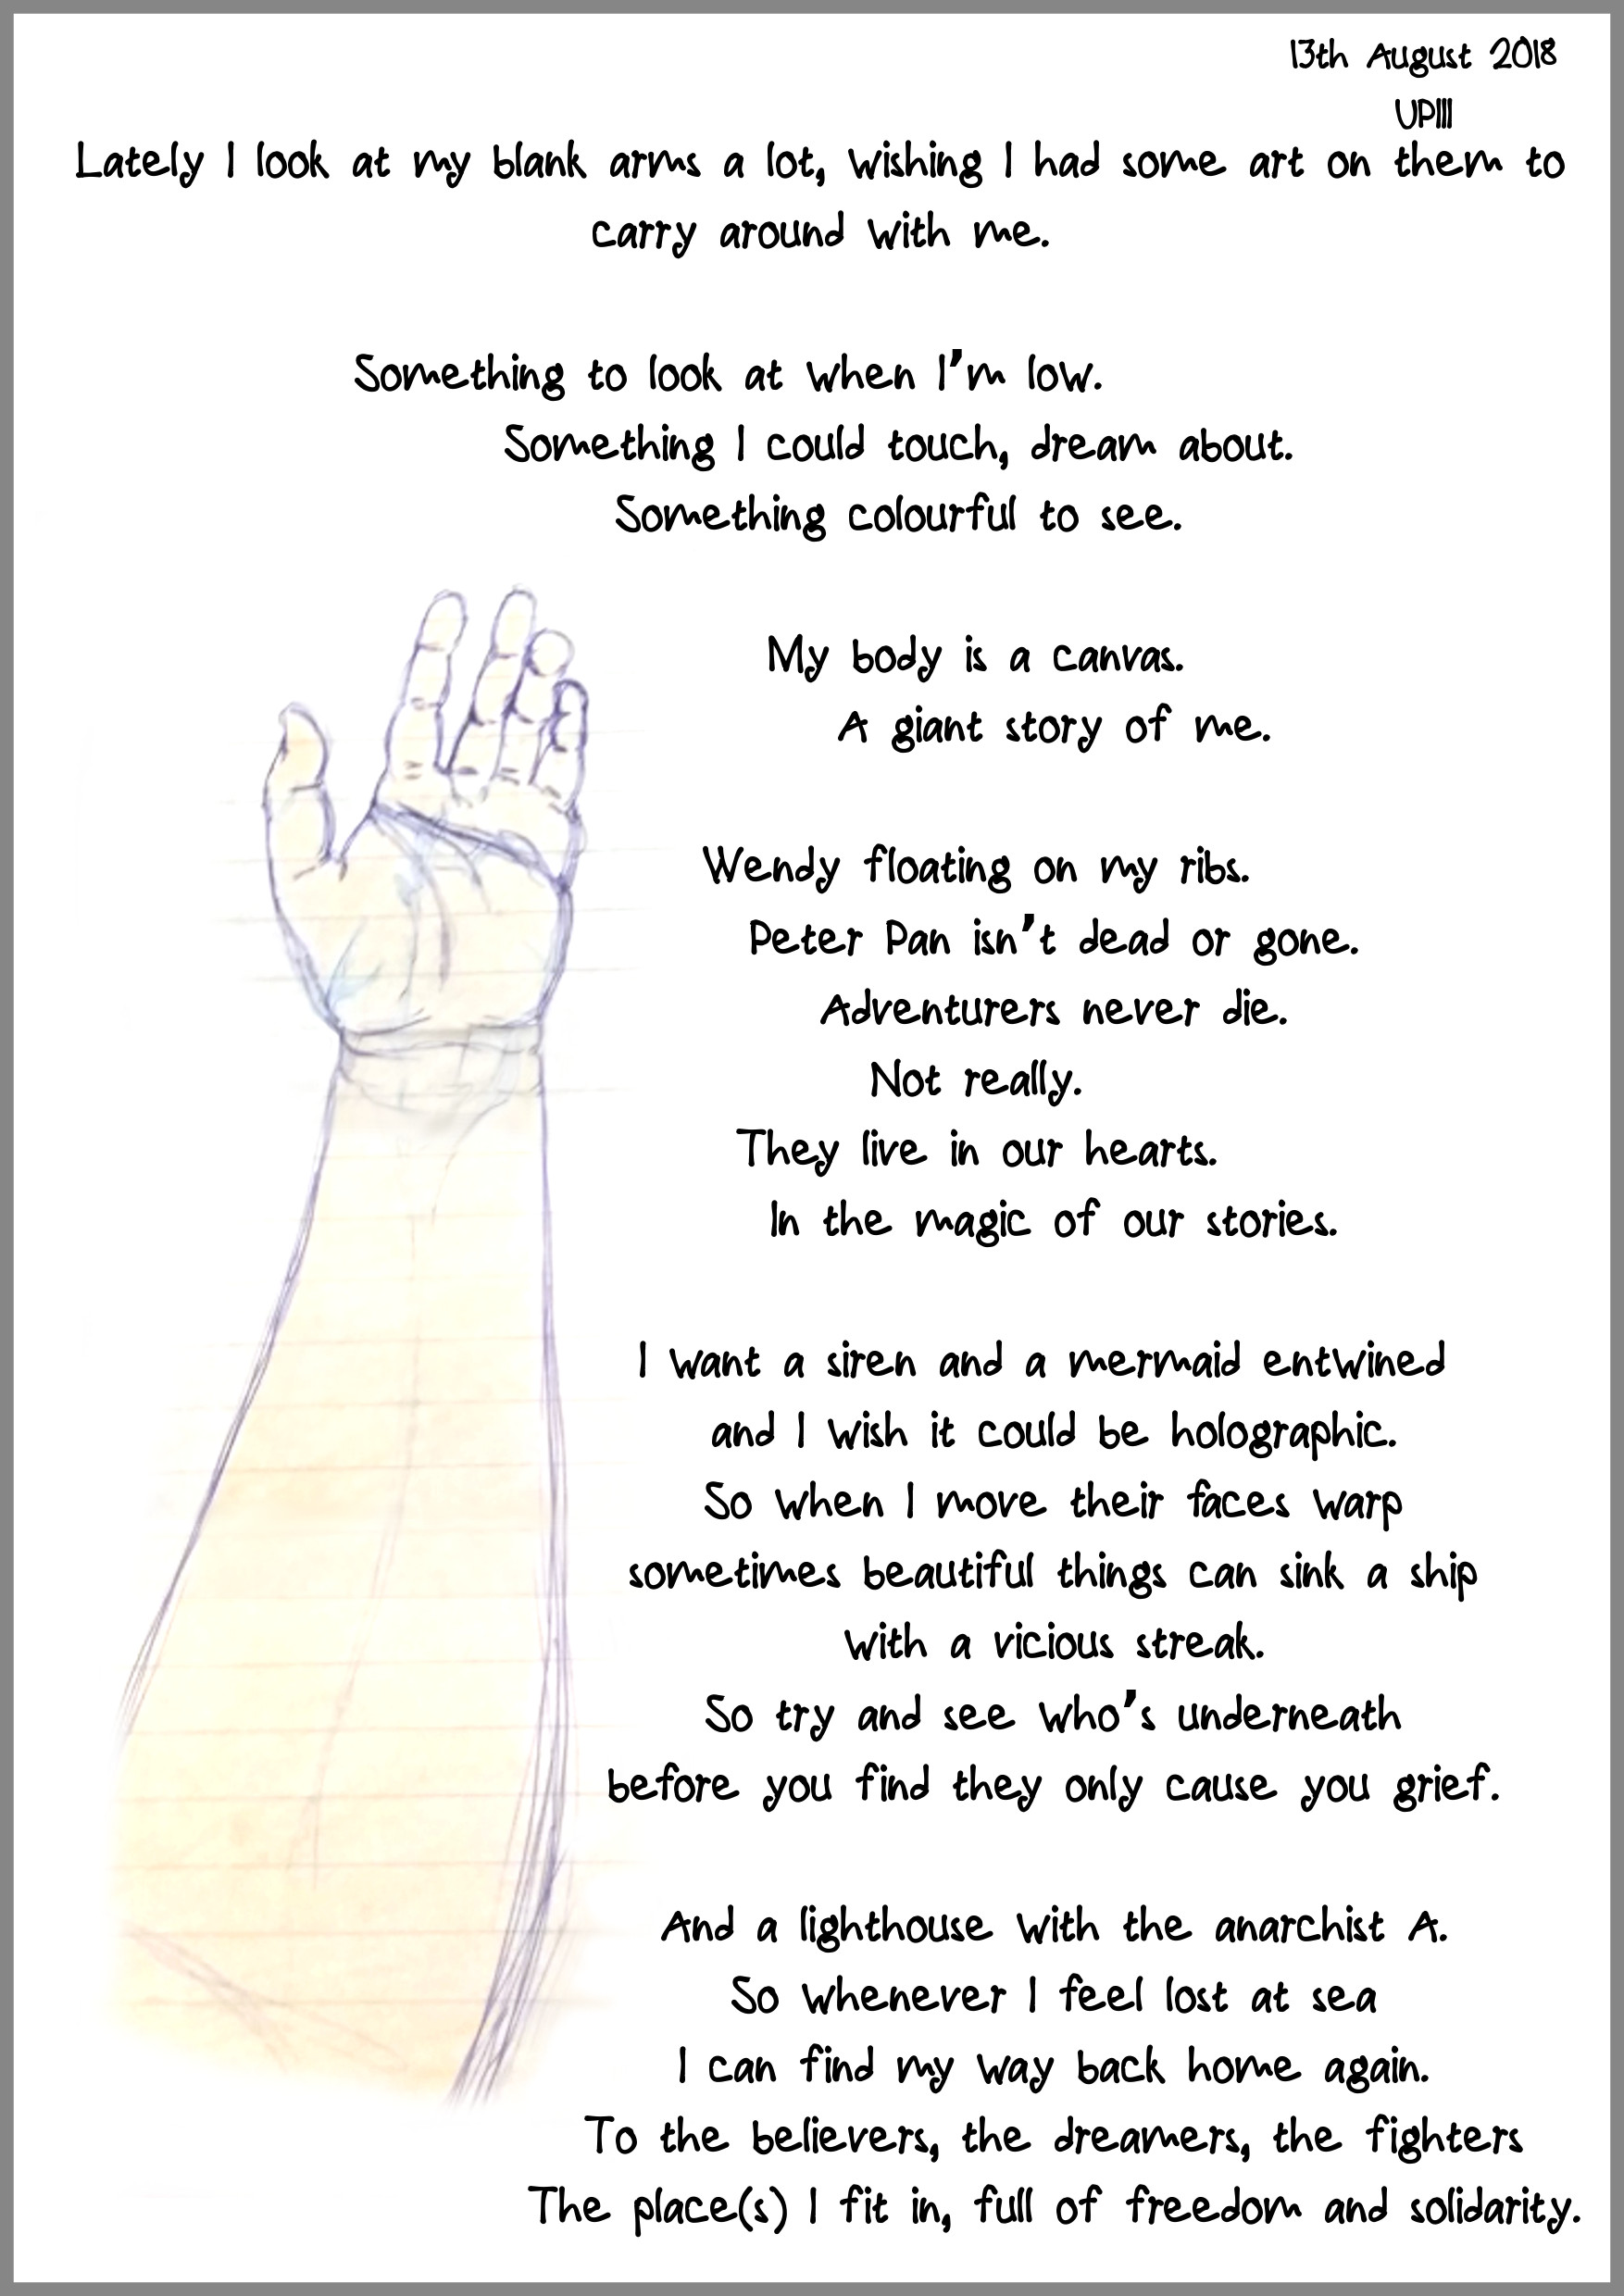 13th August 2018
UPIII
Lately I look at my blank arms a lot, wishing I had some art on them to
carry around with me.
Something to look at when I'm low.
Something I could touch, dream about.
Something colourful to see.
My body is a canvas.
A giant story of me.
Wendy floating on my ribs.
Peter Pan isn't dead or gone.
Adventurers never die.
Not really.
They live in our hearts.
In the magic of our stories.
I want a siren and a mermaid entwined
and I wish it could be holographic.
So when I move their faces warp
sometimes beautiful things can sink a ship
with a vicious streak.
So try and see who's underneath
before you find they only cause you grief.
And a lighthouse with the anarchist A.
So whenever I feel lost at sea
I can find my way back home again.
To the believers, the dreamers, the fighters
The place(s) I fit in, full of freedom and solidarity.